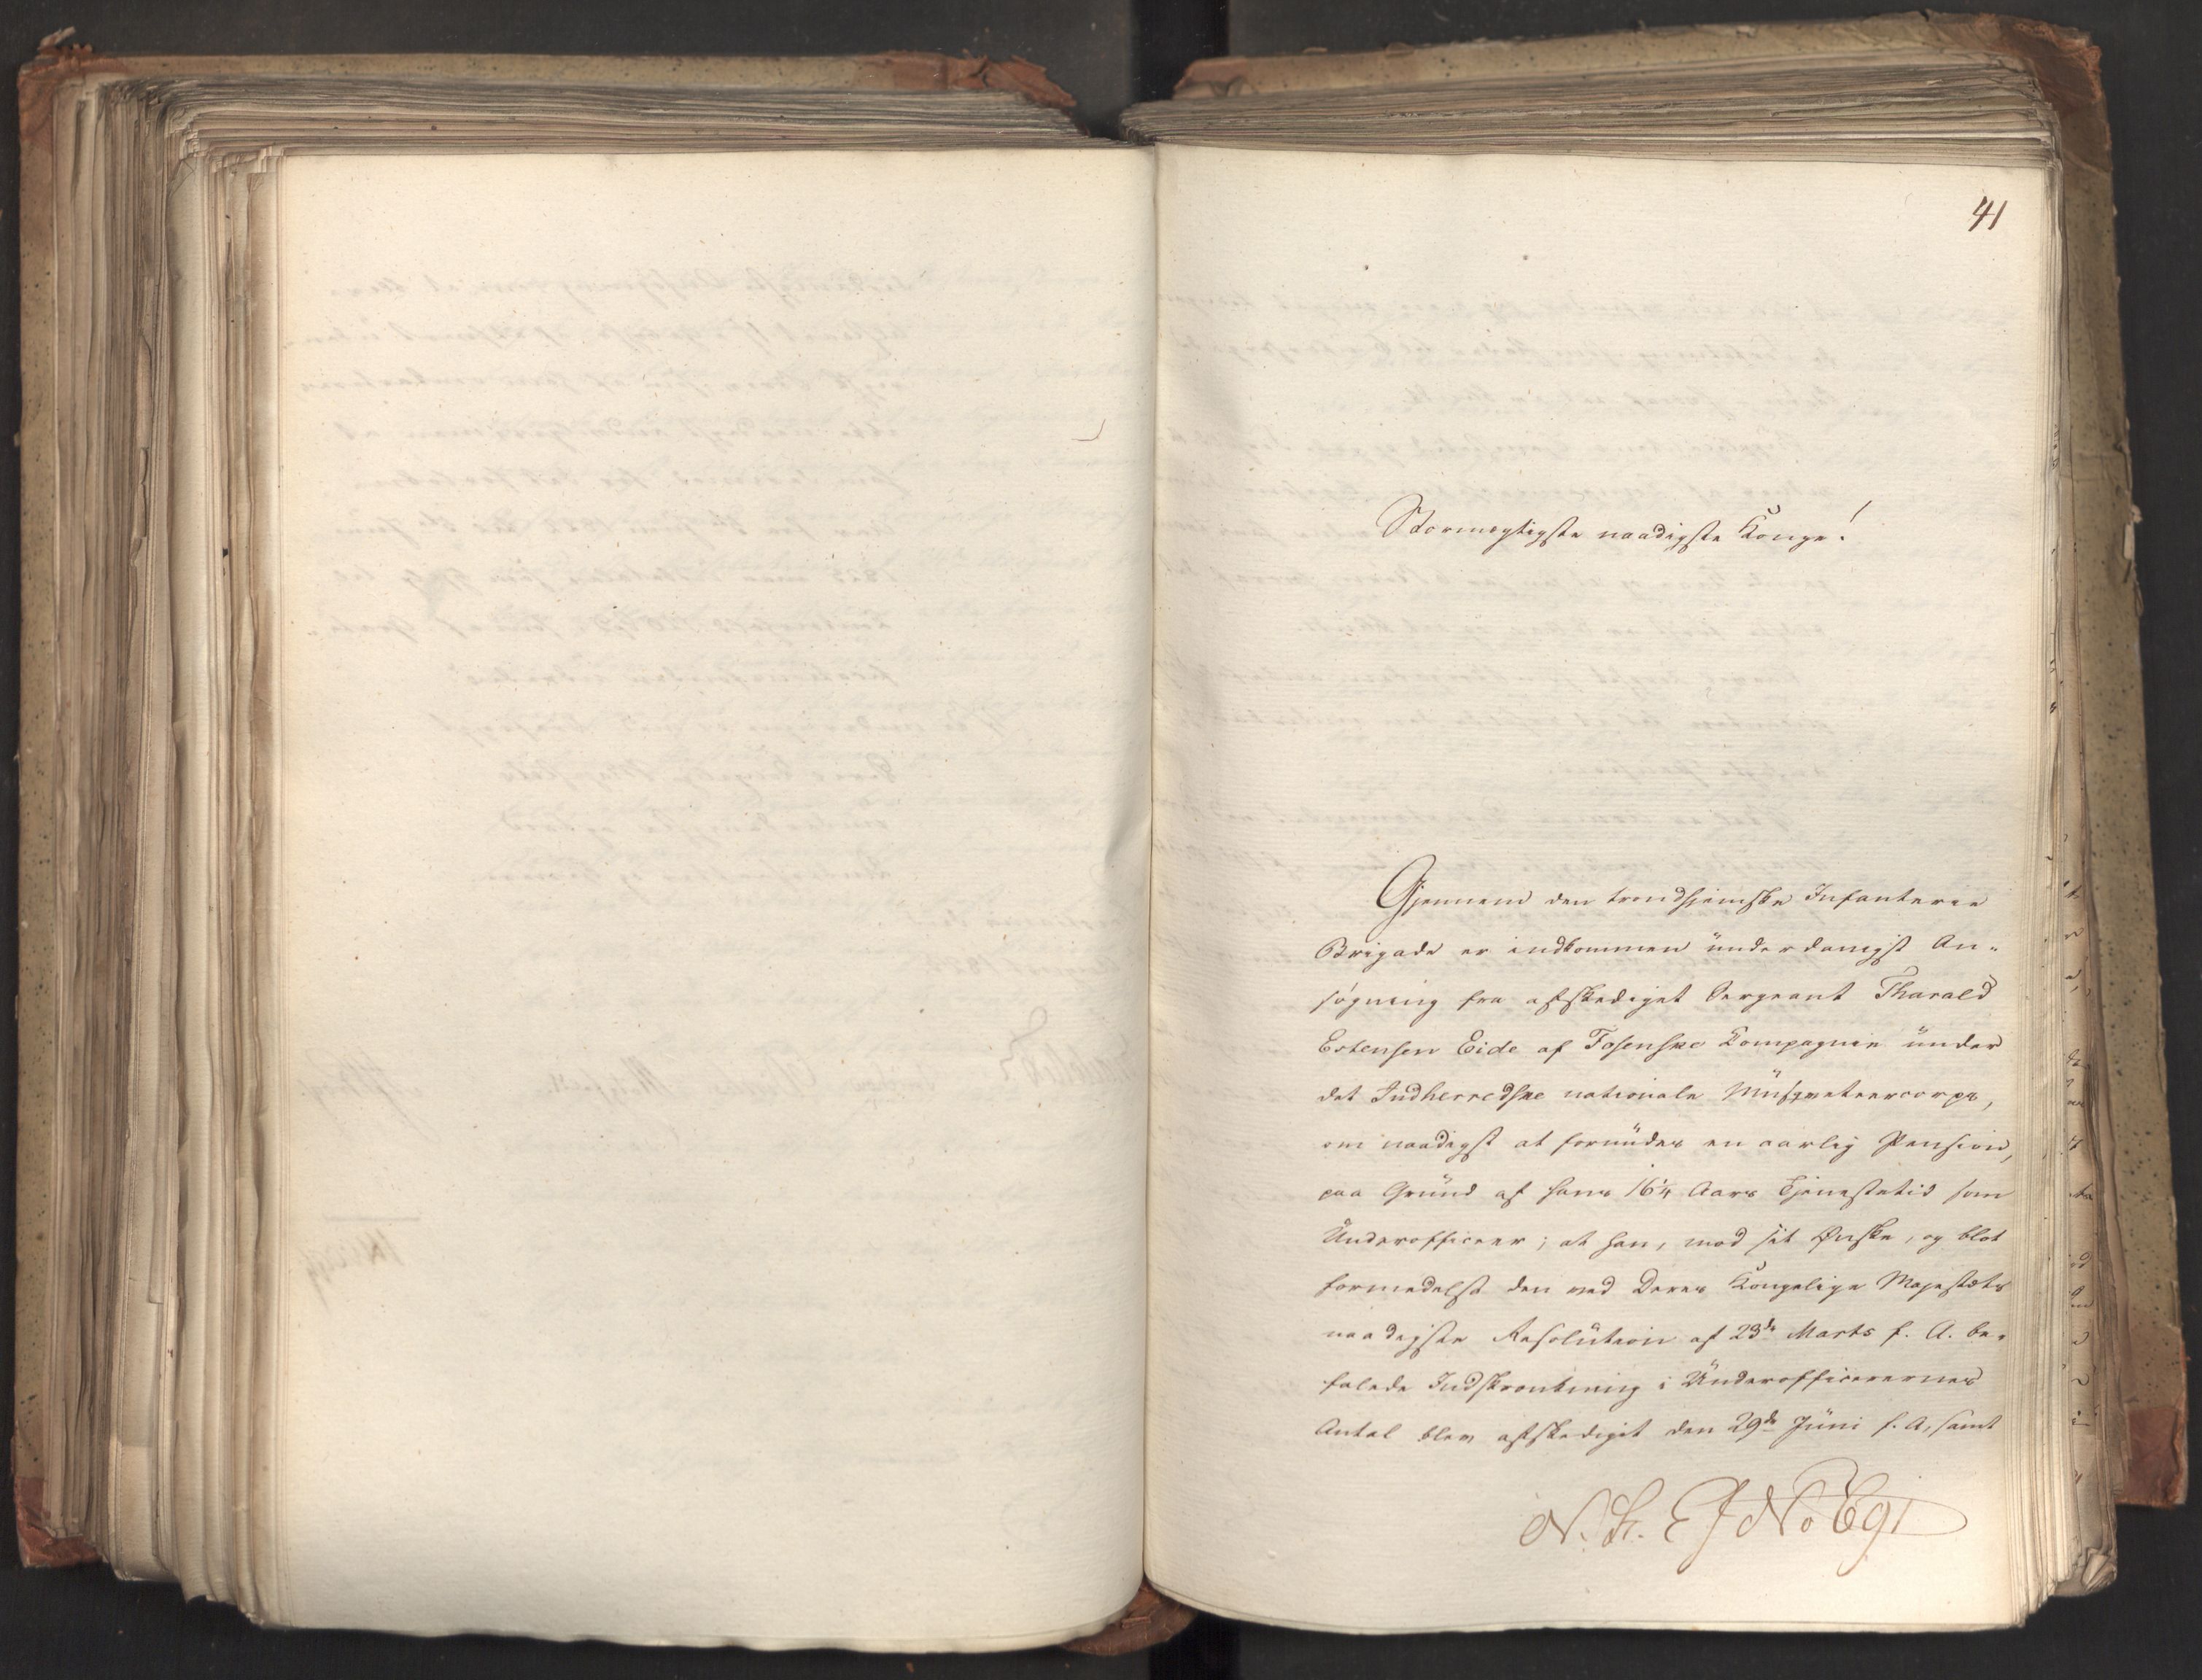 41
Stormægtigste naadigste Konge!
Gjennem den trondhjemske Infanterie
Brigade er indkommen underdanigst An-
søgning fra afskediget Sergeant Tharald
Estensen Eide af Fosenske Compagnie under
det Indherredske nationale Musqueteercorps,
om naadigst at forundes en aarlig Pension,
paa Grund af hans 16¼ Aars Tjenestetid som
Underofficeer; at han, mod sit Ønske, og blot
formedelst den ved Deres Kongelige Majestæts
naadigste Resolution af 23de Marts f. A. be-
falede Indskrænkning i Underofficerernes
Antal blev afskediget den 29de Juni f. A, samt